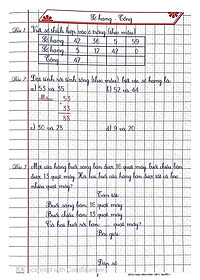 Số hạng - Tổng
Bài 1 Viết số thích hợp vào ô trống (theo mẫu)
Số hạng 42 36 5 59
Số hạng 5 12 47 0
Tổng 47
Bài 2 Đặt tính rồi tính tổng (theo mẫu) biết các số hạng là:
a) 53 và 35 b) 52 và 44
Mẫu: 53
+
35
88
c) 30 và 25 d) 9 và 20
Bài 3 Một cửa hàng buổi sáng bán được 16 quạt máy, buổi chiều bán
được 13 quạt máy. Hỏi hai buổi cửa hàng bán được tất cả bao
nhiêu quạt máy?
Tóm tắt
Buổi sáng bán: 16 quạt máy
Buổi chiều bán: 13 quạt máy
Cả hai buổi bán: quạt máy?
Bài giải
Đáp số